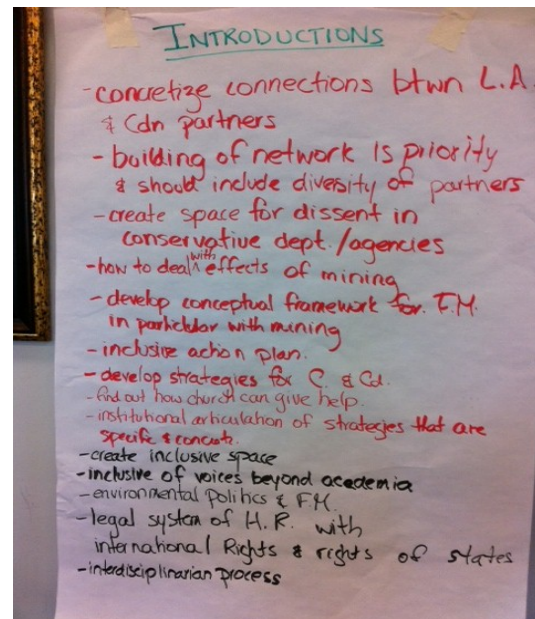 INTRODUCTIONS
- concretize connections btwn L.A.
& Cdn partners
- building of network is priority
& should include diversity of partners
- create space for dissent in
conservative dept./agencies
- how to deal with effects of mining
- develop conceptual framework for F.M.
in particular with mining
- inclusive action plan.
- develop strategies for C. & Cd.
- find out how church can give help.
- institutional articulation of strategies that are
specific & concrete.
- create inclusive space
- inclusive of voices beyond academia
- environmental politics & F.M.
- legal system of H.R. with
international Rights & rights of states
- interdisciplinarian process